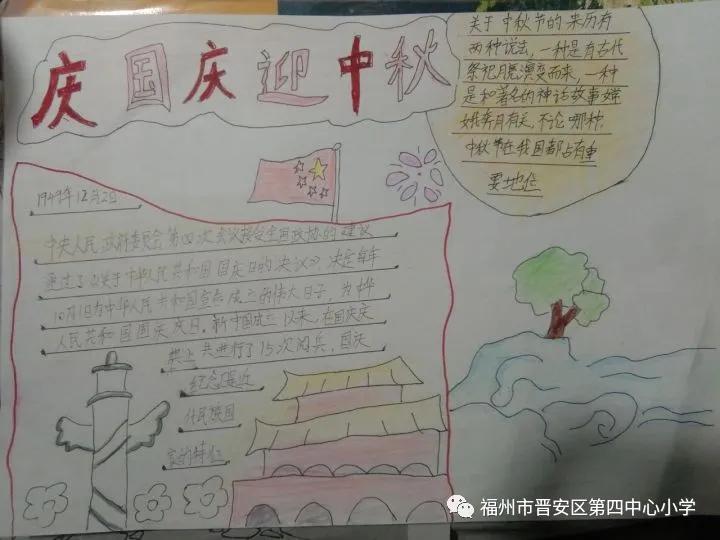 庆国庆迎中秋
关于中秋节的来历有
两种说法,一种是有古代
祭祀月亮演变而来,一种
是和著名的神话故事嫦
娥奔月有关,不论哪种,
中秋节在我国都占有重
要地位
1949年12月2日
中央人民政府委员会第四次会议接受全国政协的建议
通过了《关于中华人民共和国国庆日的决议》,决定每年
10月1日为中华人民共和国宣告成立的伟大日子,为中华
人民共和国国庆日。新中国成立以来,在国庆庆
典上共进行了15次阅兵,国庆
纪念
民族国
家的特征
福州市晋安区第四中心小学